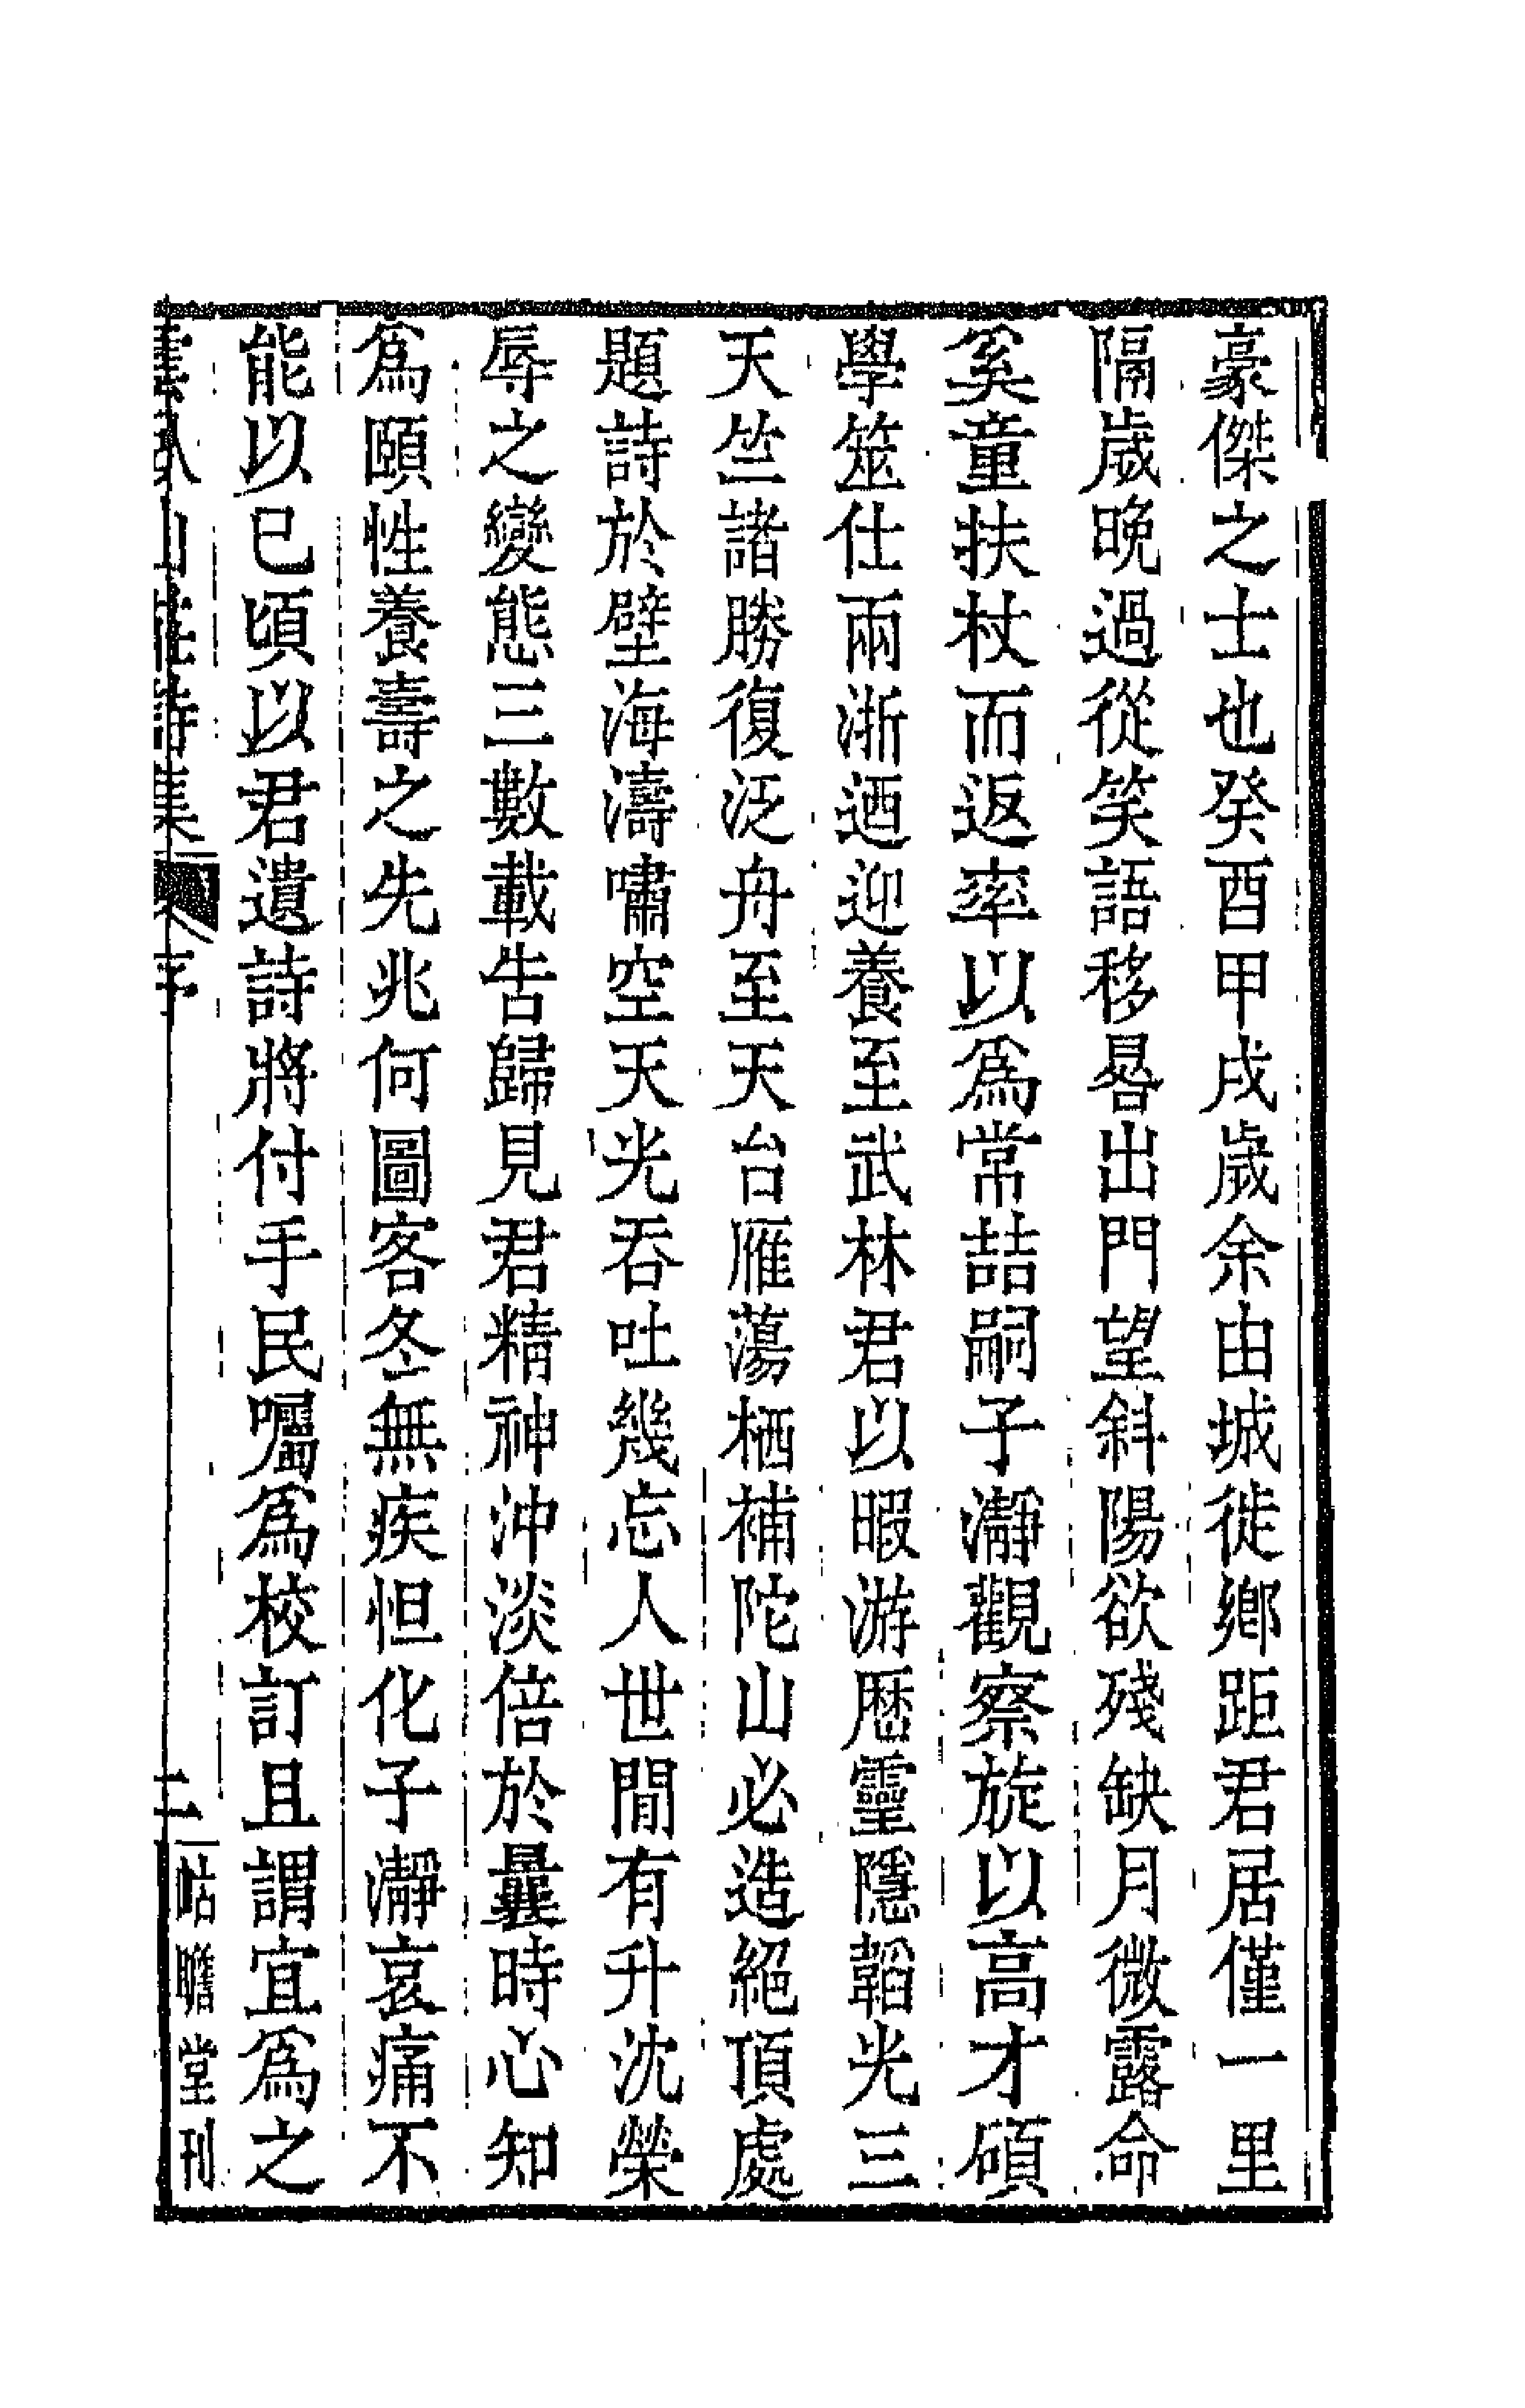 豪傑之士也癸酉甲戌歲余由城徙鄉距君居僅一里
隔歲晚過從笑語移晷出門望斜陽欲殘缺月微露命
奚童扶杖而返率以爲常喆嗣子瀞觀察旋以高才碩
學筮仕兩浙迺迎養至武林君以暇游歷靈隱韜光三
天竺諸勝復泛舟至天台雁蕩栖補陀山必造絕頂處
題詩於壁海濤嘯空天光吞吐幾忘人世間有升沈榮
辱之變態三數載告歸見君精神沖淡倍於曩時心知
爲頤性養壽之先兆何圖客冬無疾怛化子瀞哀痛不
能以已頃以君遺詩將付手民囑爲校訂且謂宜爲之
山莊詩集 序 二 怙瞻堂刊